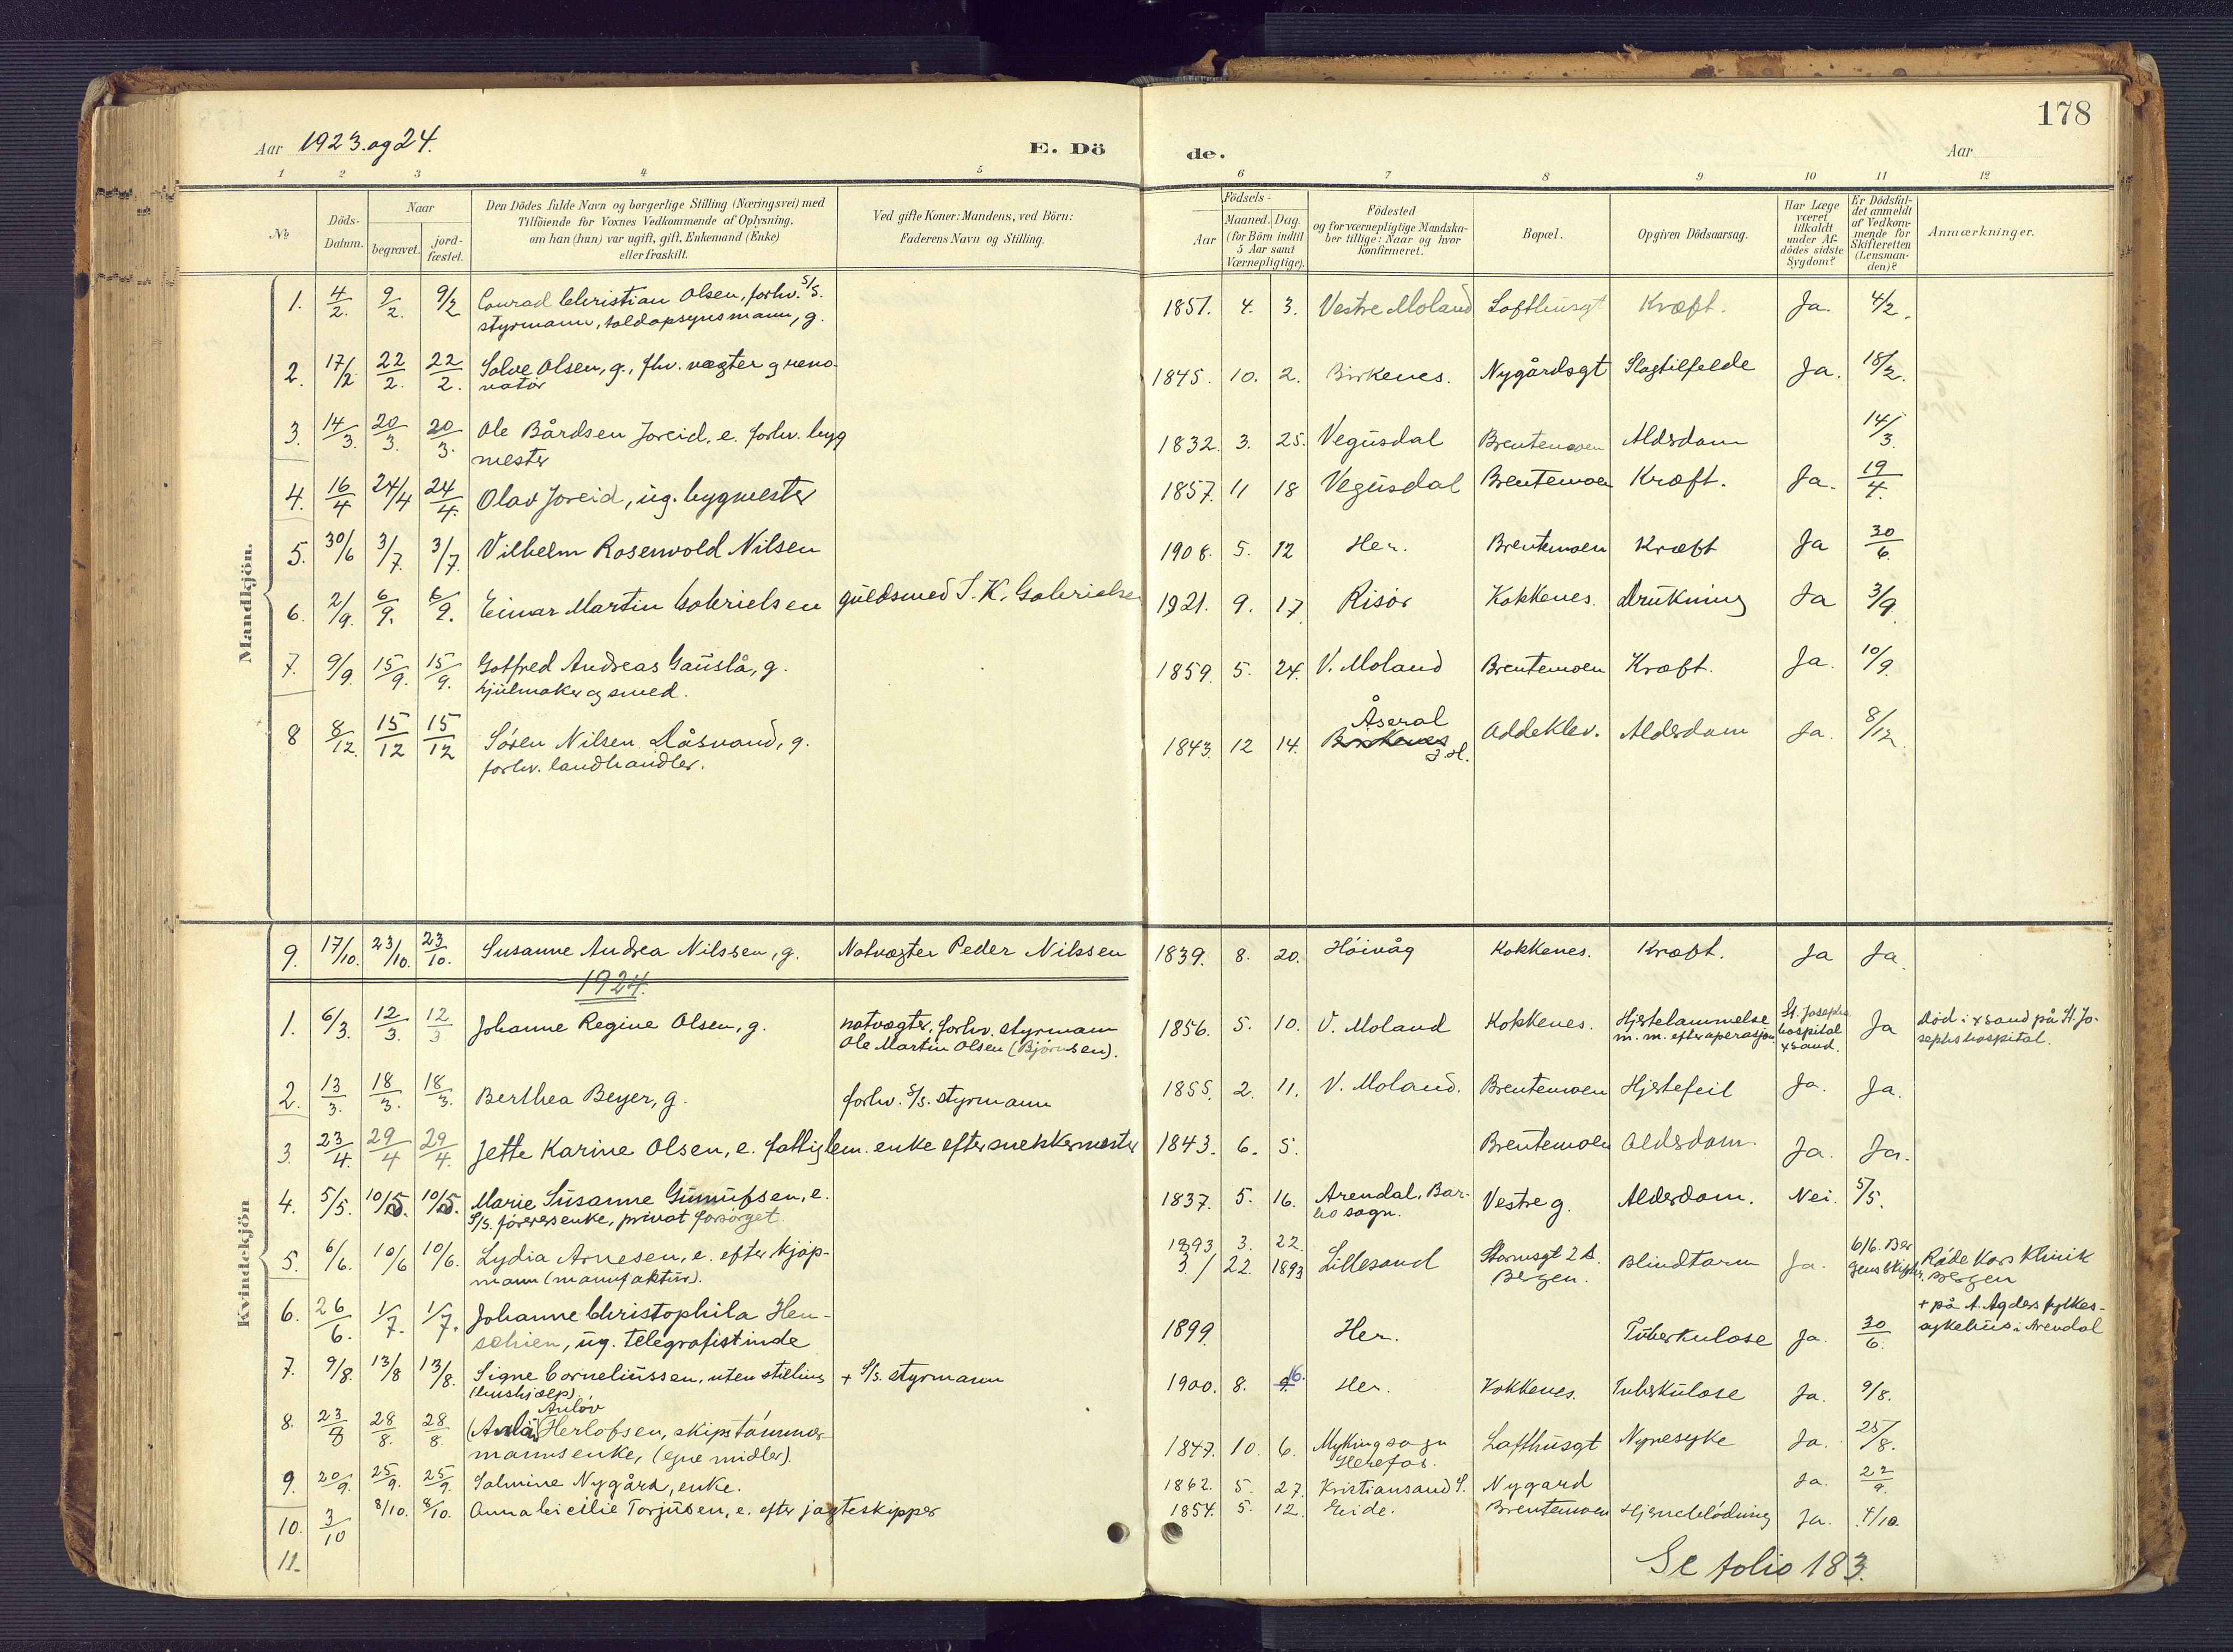 178
Aar 1923. og 24.
E. Dö de.
Aar
1 2 3 4 5 6 7 8 9 10 11 12
No
Döds-Datum.
Naar
begravet.
jord-fæstet.
Den Dödes fulde Navn og borgerlige Stilling (Næringsvei) med
Tilföiende for Voxnes Vedkommende af Oplysning,
om han (hun) var ugift, gift, Enkemand (Enke)
eller fraskilt.
Ved gifte Koner: Mandens, ved Börn:
Faderens Navn og Stilling.
Födsels-
Aar
Maaned. Dag.
(for Börn indtil
5 Aar samt
Værnepligtige).
Födested
og for værnepligtige Mandska-
ber tillige: Naar og hvor
konfirmeret.
Bopæl.
Opgiven Dödsaarsag.
Har Læge
været
tilkaldt
under Af-
dödes sidste
Sygdom?
Er Dödsfal-
det anmeldt
af Vedkom-
mende for
Skifteretten
(Lensman-
den)?
Anmærkninger.
Mandkjön.
1. 4/2. 9/2. 9/2 Conrad Christian Olsen, forhv. S/S. 1851. 4. 3. Vestre Moland Lofthusgt Kræft. Ja. 4/2.
styrmann, toldopsynsmann, g.
2. 17/2 22/2. 22/2. Solve Olsen, g., fhv. vægter g reno- 1845. 10. 2. Birkenes. Nygårdsgt Slagtilfelde Ja. 18/2.
vatör
3. 14/3. 20/3. 20/3. Ole Bårdsen Joreid, e. forhv. byg 1832. 3. 25. Vegusdal Brentemoen Aldsdom 14/3.
mester
4. 16/4 24/4 24/4. Olav Joreid, ug. bygmester 1857. 11 18 Vegusdal Brentemoen Kræft. Ja. 19/4.
5. 30/6 3/7. 3/7. Vilhelm Rosenvold Nilsen 1908. 5. 12 Her. Brentemoen Kræft Ja 30/6.
6. 2/9. 6/9. 6/9. Einar Martin Gabrielsen guldsmed S. K. Gabrielsen 1921. 9. 17. Risör Kokkenes. Drukning Ja 3/9.
7. 9/9. 15/9. 15/9. Gotfred Andreas Gauslå, g. 1859. 5. 24. V. Moland Brentemoen Kræft. Ja. 10/9.
hjulmaker og smed.
8 8/12. 15/12 15/12 Sören Nilsen Dåsvand, g. 1843. 12 14. Birkenes Åseral J. H. Addeklev. Aldersdom Ja. 8/12.
forhv. landhandler.
Kvindekjön
9. 17/10. 23/10. 23/10. Susanne Andrea Nilssen, g. Natvægter Peder Nilssen 1839. 8. 20. Höivåg Kokkenes. Kræft. Ja Ja.
1924.
1. 6/3. 12/3. 12/3 Johanne Regine Olsen, g. natvægter, forhv. styrmann 1856. 5. 10. V. Moland Kokkenes. Hjertelammelse St. Josephs Ja Död i xsand på St. Jo-
Ole Martin Olsen (Björnsen). m. m. efter operasjon hospital xsand. sephs hospital.
2. 13/3. 18/3. 18/3. Berthea Beyer, g. forhv. S/S. styrmann 1855. 2. 11. V. Moland. Brentemoen Hjertefeil Ja. Ja.
3. 23/4. 29/4 29/4. Jette Karine Olsen, e. fattiglem. enke efter snekkermester 1843. 6. 5. Brentemoen Alderdom. Ja. Ja.
4. 5/5. 10/5. 10/5. Marie Susanne Gunnufsen, e. 1837. 5. 16. Arendal, Bar- Vestre g. Alderdom. Nei. 5/5.
S/S. förersenke, privat forsörget. bo sogn.
5. 6/6. 10/6 10/6. Lydia Arnesen, e. efter kjöp- 1893 3. 22. 3/22. 1893 Lillesand 2 A Bergen. Blindtarm Ja. 6/6. Röde Kors Klinik
mann (manufaktur). Bergen
6. 26/6. 1/7. 1/7. Johanne Christophila Hen- 1899. Her. Tuberkulose Ja. 30/6. + på A. Agders fylkes-
schien, ug. telegrafistinde sykehus i Arendal
7. 9/8. 13/8 13/8. Signe Corneliussen, uten stilling + S/S. styrmann 1900. 8. 9. 16. Her. Kokkenes. Tuberkulose Ja. 9/8.
(hushjælp).
8. 23/8 28/8. 28/8. Anlov Herlofsen, skipstömmer- 1847. 10. 6. Mykingsogn Lofthusgt Nyresyke Ja. 25/8.
mannsenke, (egne midler). Herefos.
9. 20/9. 25/9. 25/9. Salmine Nygård, enke. 1862. 5. 27. Kristiansand S. Nygard Ja. 22/9.
10. 3/10 8/10. 8/10. Anna Cicilie Torjusen, e. efter jagteskipper 1854. 5. 12. Eide. Brentemoen Hjerneblödning Ja. 4/10.
11.
Se folio 183.